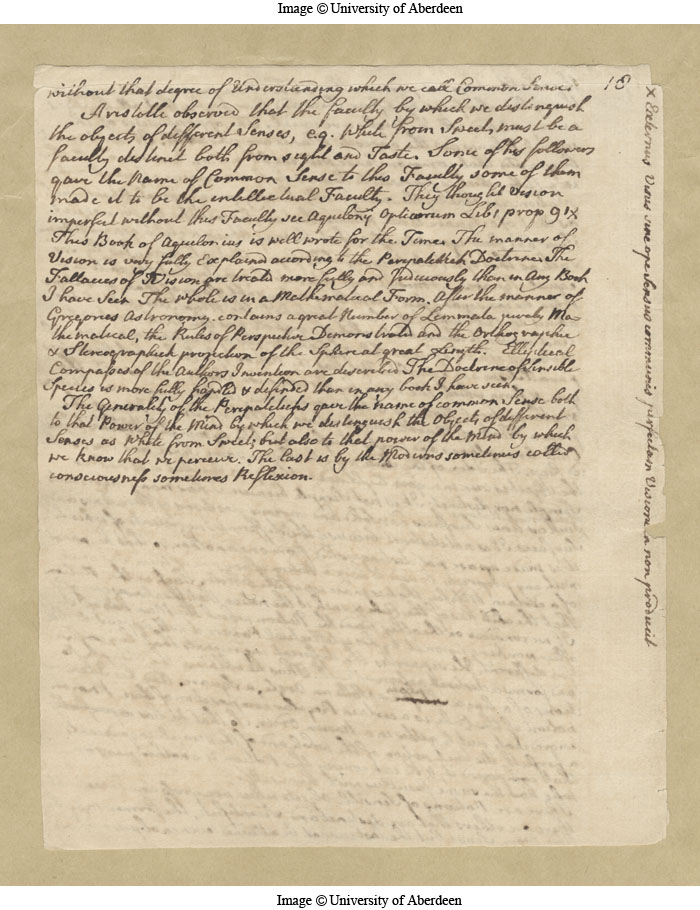 Image © University of Aberdeen
18
without that degree of Understanding which we call Common Sense.
Aristotle observed that the faculty by which we distinguish
the objects of different Senses, e.g. White from Sweet, must be a
faculty distinct both from sight and Taste. Some of his followers
gave the Name of Common Sense to this Faculty some of them
made it to be the intellectual Faculty. They thought Vision
imperfect without this Faculty see Aquilonij Opticorum Lib 1 prop 91 x
This Book of Aquilonius is well wrote for the Time. The manner of
Vision is very fully Explained according to the Peripatetick Doctrine. The
Fallacies of Vision are treated more fully and Judiciously than in Any Book
I have Seen The whole is in a Mathematical Form. After the manner of
Gregories Astronomy. contains a great Number of Lemmata purely Ma-
thematical, the Rules of Perspective Demonstrated and the Orthographic
& Stereographick projection of the Sphere at great Length. Elliptical
Compasses of the Authors Invention are described The Doctrine of sensible
Species is more fully handled & defended than in any book I have seen.
The Generality of the Peripateticks gave the name of common Sense both
to that Power of the Mind by which we distinguish the Objects of different
Senses as White from Sweet; but also to that power of the Mind by which
we know that we perceive. The last is by the Moderns sometimes called
consciousness sometimes Reflexion.
x Externus visus sine ope sensus communis perfectam Visionem non producit
Image © University of Aberdeen